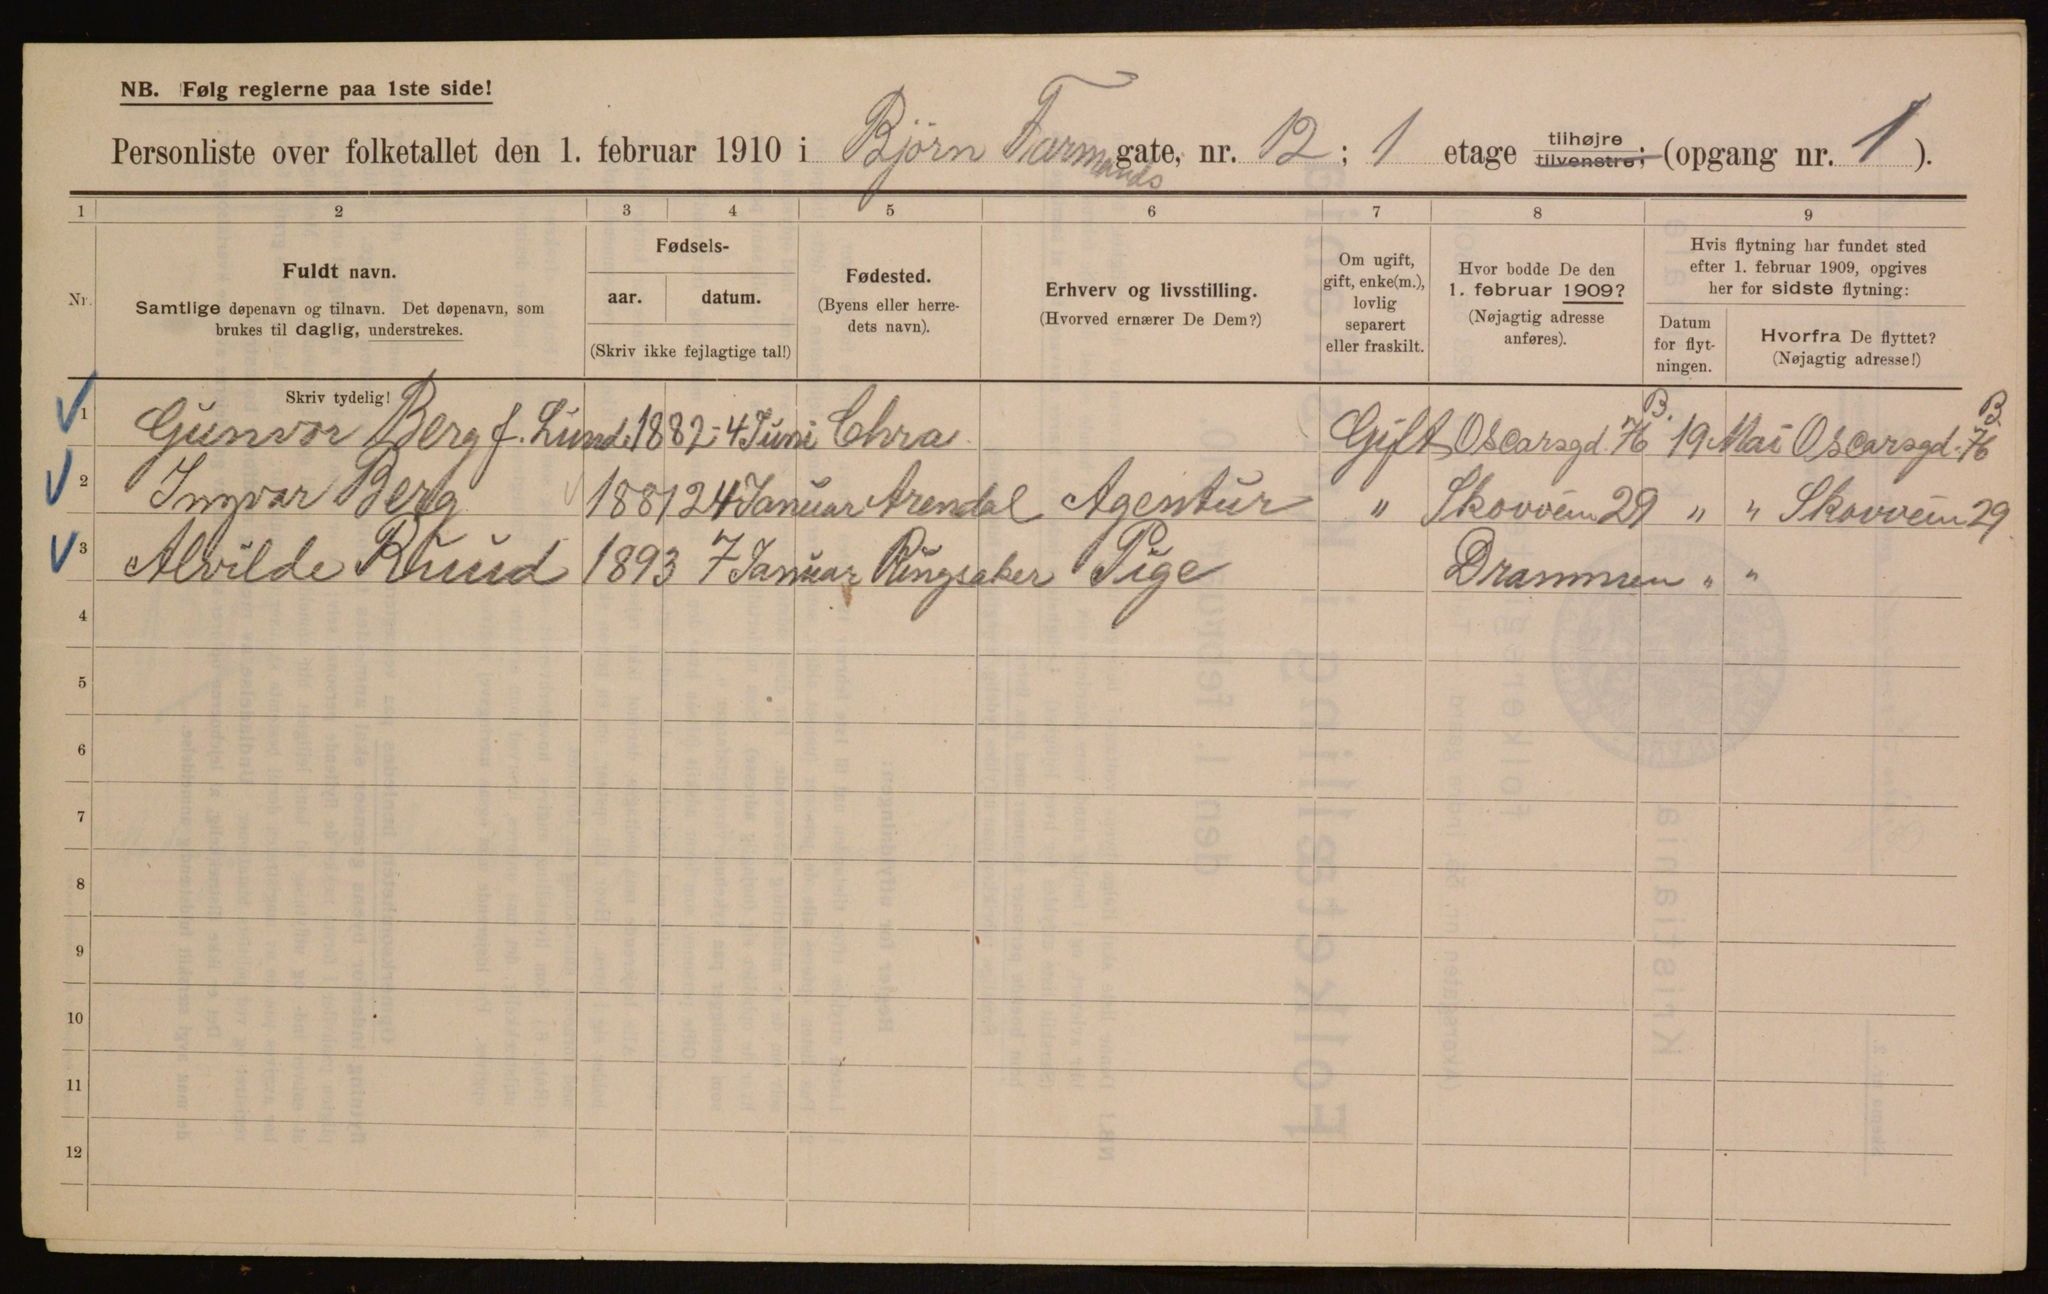 NB. Følg reglerne paa 1ste side!
Personliste over folketallet den 1. februar 1910 i Bjørn Farmands gate, nr. 12; 1 etage tilhøjre tilvenstre; (opgang nr. 1).
1 2 3 4 5 6 7 8 9
Nr.
Fuldt navn.
Samtlige døpenavn og tilnavn. Det døpenavn, som
brukes til daglig, understrekes.
Fødsels-
aar. datum.
(Skriv ikke fejlagtige tal!)
Fødested.
(Byens eller herre-
dets navn).
Erhverv og livsstilling.
(Hvorved ernærer De Dem?)
Om ugift,
gift, enke(m.),
lovlig
separert
eller fraskilt.
Hvor bodde De den
1. februar 1909?
(Nøjagtig adresse
anføres).
Hvis flytning har fundet sted
efter 1. februar 1909, opgives
her for sidste flytning:
Datum
for flyt-
ningen.
Hvorfra De flyttet?
(Nøjagtig adresse!)
Skriv tydelig!
1 Gunvor Berg f. Lund 1882 4 Juni Chra Gift Oscarsgd. 76 B. 19 Mai Oscarsgd. 76 B.
2 Ingvar Berg 1881 24 Januar Arendal Agentur " Skovvein 29 " " Skovvein 29
3 Alvilde Ruud 1893 7 Januar Ringsaker Pige Drammen " "
4
5
6
7
8
9
10
11
12